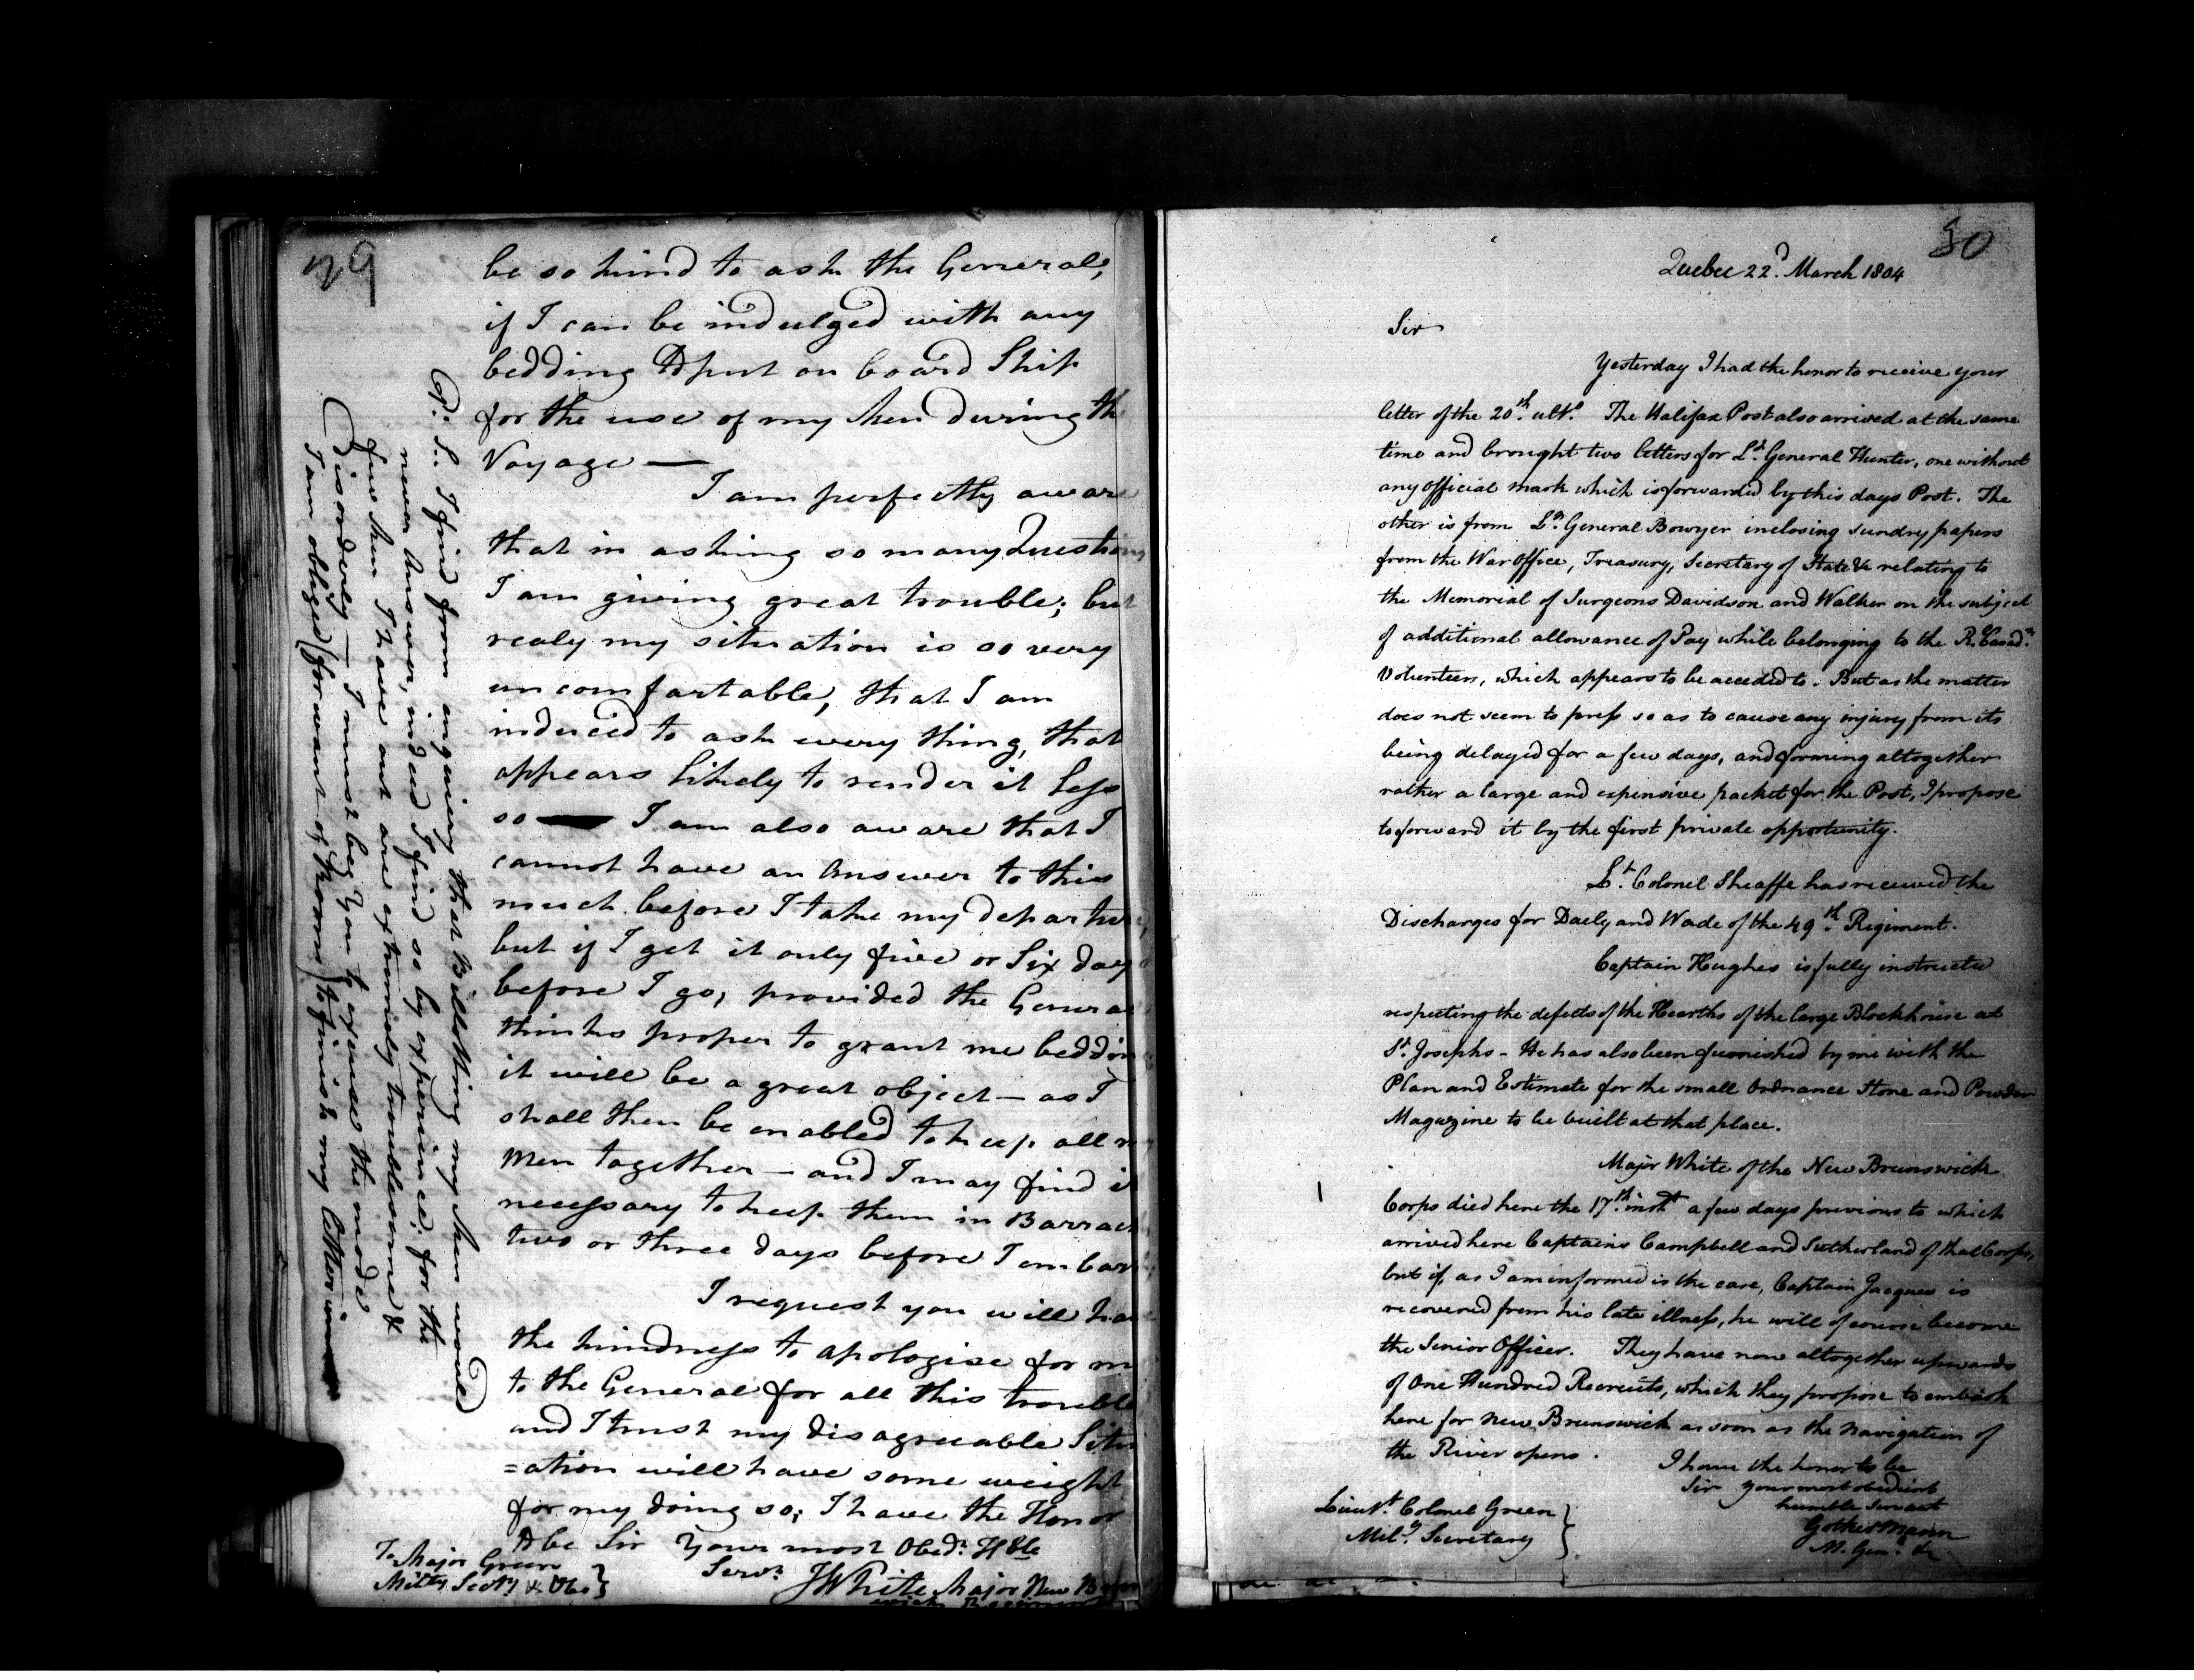 79
be so kind to ask the General,
if I can be indulged with any
bedding to put on board Ship
for the use of my Men during th
Voyage —
I am perfectly aware
that in asking so many Questions
I am giving great trouble; but
realy my situation is so very
uncomfortable, that I am
induced to ask every thing, that
appears likely to render it less
so — I am also aware that I
cannot have an Answer to this
much before I take my departure,
but if I get it only five or Six days
before I go, provided the General
thinks proper to grant me beddin
it will be a great object — as I
shall then be enabled to keep all m
Men together — and I may find it
necessary to keep them in Barrack
two or three days before I embark
I request you will have
the kindness to apologise for m
to the General for all this trouble
and I trust my disagreeable Situ
=ation will have some weight
for my doing so; I have the Honor
to be Sir Your most Obedt. Hble
Servt.
J White Major New Bruns
wick Regiment
To Major Green
Milty Secty &
P: S: I find from enquiery that Billetting my Men would
never Answer, indeed I find so by experience: for the
few Men I have out are extremely troublesome &
Disorderly — I must beg You to excuse the mode
I am obliged (for want of Room) to finish my letter in
80
Quebec 22d. March 1804
Sir
Yesterday I had the honor to receive your
letter of the 20th. ulto. The Halifax Post also arrived at the same
time and brought two letters for Lt. General Hunter, one without
any official mark which is forwarded by this days Post. The
other is from Lt. General Bowyer inclosing sundry papers
from the War Office, Treasury, Secretary of State &c relating to
the Memorial of Surgeons Davidson and Walker on the subject
of additional allowance of Pay while belonging to the Rl. Canadn.
Volunteers, which appears to be acceded to. But as the matter
does not seem to press so as to cause any injury from its
being delayed for a few days, and forming altogether
rather a large and expensive packet for the Post, I propose
to forward it by the first private opportunity.
Lt. Colonel Sheaffe has received the
Discharges for Daely and Wade of the 49th. Regiment.
Captain Hughes is fully instructed
respecting the defects of the Hearths of the large Blockhouse at
St. Josephs - He has also been furnished by me with the
Plan and Estimate for the small Ordnance Store and Powder
Magazine to be built at that place.
Major White of the New Brunswick
Corps died here the 17th. inst. a few days previous to which
arrived here Captains Campbell and Sutherland of that Corps,
but if, as I am informed is the case, Captain Jacques is
recovered from his late illness, he will of course become
the Senior Officer. They have now altogether upwards
of One Hundred Recruits, which they propose to embark
here for New Brunswick as soon as the Navigation of
the River opens.
I have the honor to be
Sir your most obedient
humble Servant
Gother Mann
M. Genl. &c
Lieut. Colonel Green
Mily. Secretary